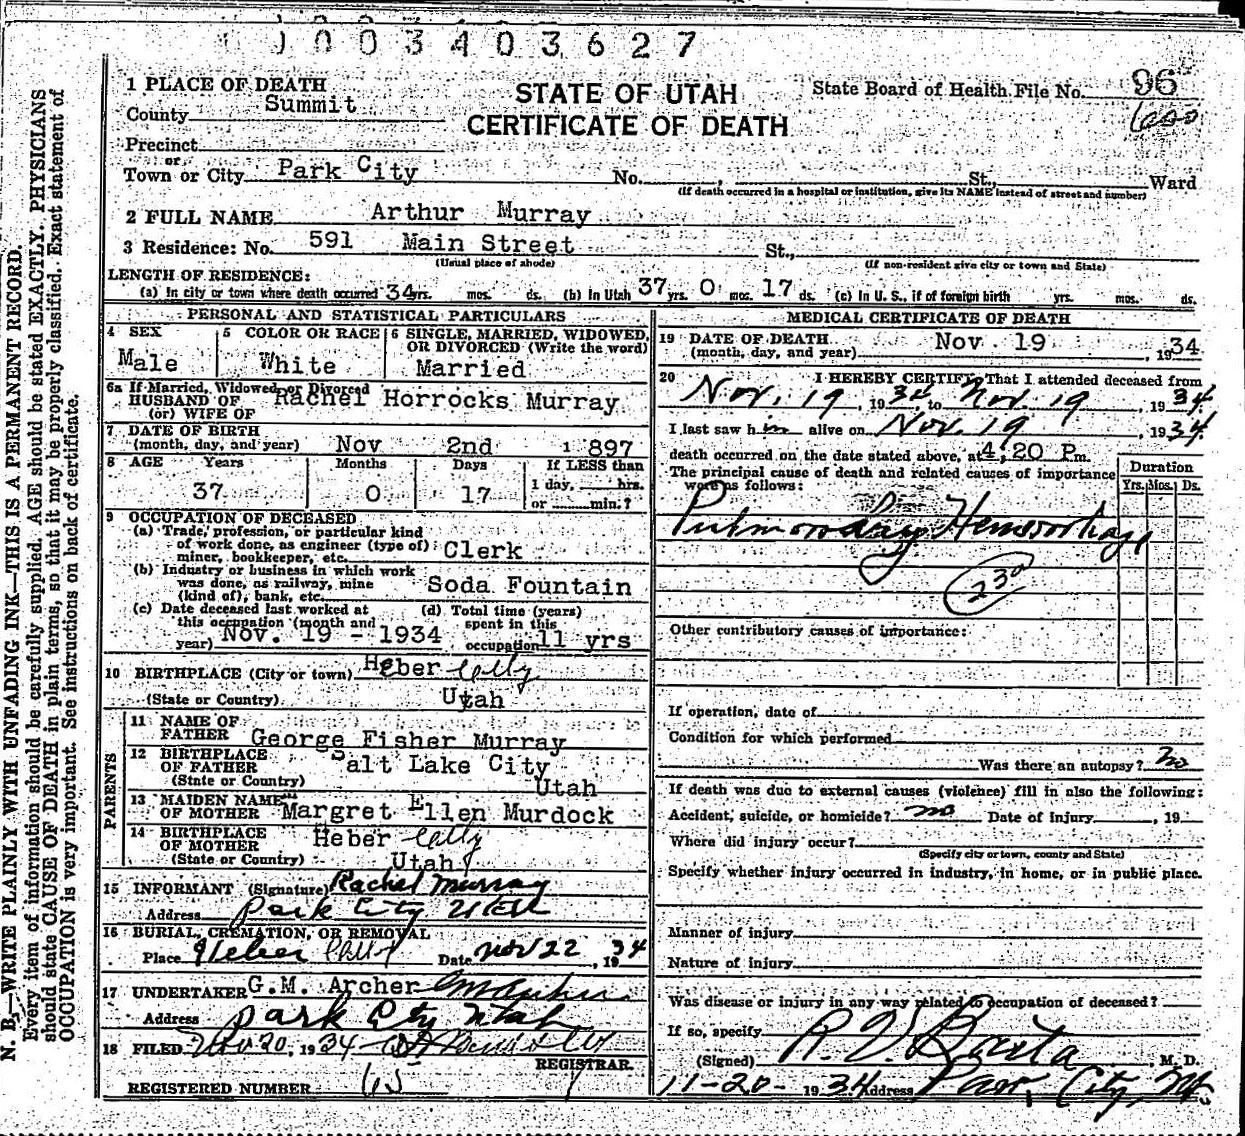 1 0 0 3 4 0 3 6 2 7
N. B.—WRITE PLAINLY WITH UNFADING INK—THIS IS A PERMANENT RECORD.
Every item of information should be carefully supplied. AGE should be stated EXACTLY. PHYSICIANS
should state CAUSE OF DEATH in plain terms, so that it may be properly classified. Exact statement of
OCCUPATION is very important. See instructions on back of certificate.
1 PLACE OF DEATH
County Summit
Precinct
or
Town or City Park City
STATE OF UTAH
CERTIFICATE OF DEATH
State Board of Health File No. 96
No. , St., Ward
(If death occurred in a hospital or institution, give its NAME instead of street and number)
2 FULL NAME Arthur Murray
3 Residence: No. 591 Main Street St.,
(Usual place of abode) (If non-resident give city or town and State)
LENGTH OF RESIDENCE:
(a) In city or town where death occurred 34 yrs. mos. ds. (b) In Utah 37 yrs. 0 mos. 17 ds. (c) In U. S., if of foreign birth yrs. mos. ds.
PERSONAL AND STATISTICAL PARTICULARS
4 SEX Male
5 COLOR OR RACE White
6 SINGLE, MARRIED, WIDOWED, OR DIVORCED (Write the word)
Married
6a If Married, Widowed or Divorced
HUSBAND OF Rachel Horrocks Murray
(or) WIFE OF
7 DATE OF BIRTH
(month, day, and year) Nov 2nd 1897
8 AGE Years Months Days If LESS than
37 0 17 1 day, hrs.
or min.?
9 OCCUPATION OF DECEASED
(a) Trade, profession, or particular kind
of work done, as engineer (type of) Clerk
miner, bookkeeper, etc.
(b) Industry or business in which work
was done, as railway, mine Soda Fountain
(kind of), bank, etc.
(c) Date deceased last worked at (d) Total time (years)
this occupation (month and spent in this
year) Nov. 19 - 1934 occupation 11 yrs
10 BIRTHPLACE (City or town) Heber City
(State or Country) Utah
PARENTS
11 NAME OF
FATHER George Fisher Murray
12 BIRTHPLACE
OF FATHER Salt Lake City
(State or Country) Utah
13 MAIDEN NAME
OF MOTHER Margret Ellen Murdock
14 BIRTHPLACE
OF MOTHER Heber City
(State or Country) Utah
15 INFORMANT (Signature) Rachel Murray
Address Park City Utah
16 BURIAL, CREMATION, OR REMOVAL
Place Heber City Date Nov 22, 1934
17 UNDERTAKER G.M. Archer
Address Park City Utah
18 FILED Nov 20, 1934
REGISTRAR.
REGISTERED NUMBER 65
MEDICAL CERTIFICATE OF DEATH
19 DATE OF DEATH
(month, day, and year) Nov. 19, 1934
20 I HEREBY CERTIFY That I attended deceased from
Nov. 19, 1934 to Nov. 19, 1934.
I last saw him alive on Nov. 19, 1934.
death occurred on the date stated above, at 4:20 P.m.
The principal cause of death and related causes of importance
were as follows:
Duration
Yrs. Mos. Ds.
Pulmonary Hemorrhage
Other contributory causes of importance:
If operation, date of
Condition for which performed
Was there an autopsy? No
If death was due to external causes (violence) fill in also the following:
Accident, suicide, or homicide? no Date of injury , 19
Where did injury occur?
(Specify city or town, county and State)
Specify whether injury occurred in industry, in home, or in public place.
Manner of injury
Nature of injury
Was disease or injury in any way related to occupation of deceased?
If so, specify
(Signed) M. D.
11-20-1934 Address Park City, Ut.